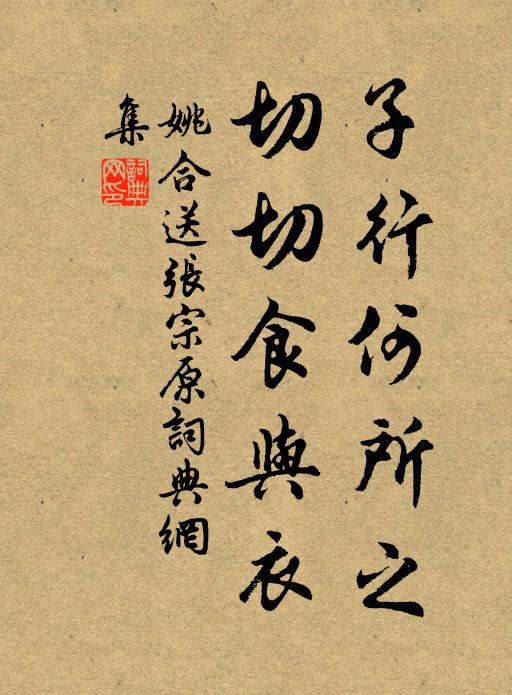 子行何所之
切切食與衣
姚合送張宗原詞典網
集
詞典
网印